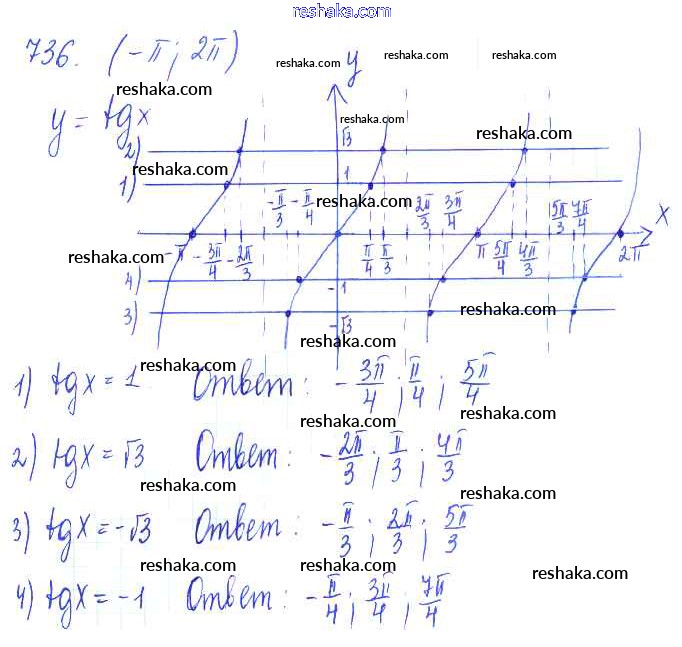 reshaka.com
736. (-π; 2π)
reshaka.com
reshaka.com
reshaka.com
y
reshaka.com
y = tgx
reshaka.com
√3
reshaka.com
2)
reshaka.com
1)
1
-π/3 -π/4
reshaka.com
2π/3 3π/4
5π/3 7π/4
x
reshaka.com
-π -3π/4 -2π/3
π/4 π/3
π 5π/4 4π/3
2π
reshaka.com
4)
-1
reshaka.com
3)
-√3
reshaka.com
reshaka.com
1) tgx = 1 Ответ: -3π/4; π/4; 5π/4
reshaka.com
reshaka.com
2) tgx = √3 Ответ: -2π/3; π/3; 4π/3
reshaka.com
reshaka.com
3) tgx = -√3 Ответ: -π/3; 2π/3; 5π/3
reshaka.com
reshaka.com
reshaka.com
4) tgx = -1 Ответ: -π/4; 3π/4; 7π/4
reshaka.com
reshaka.com